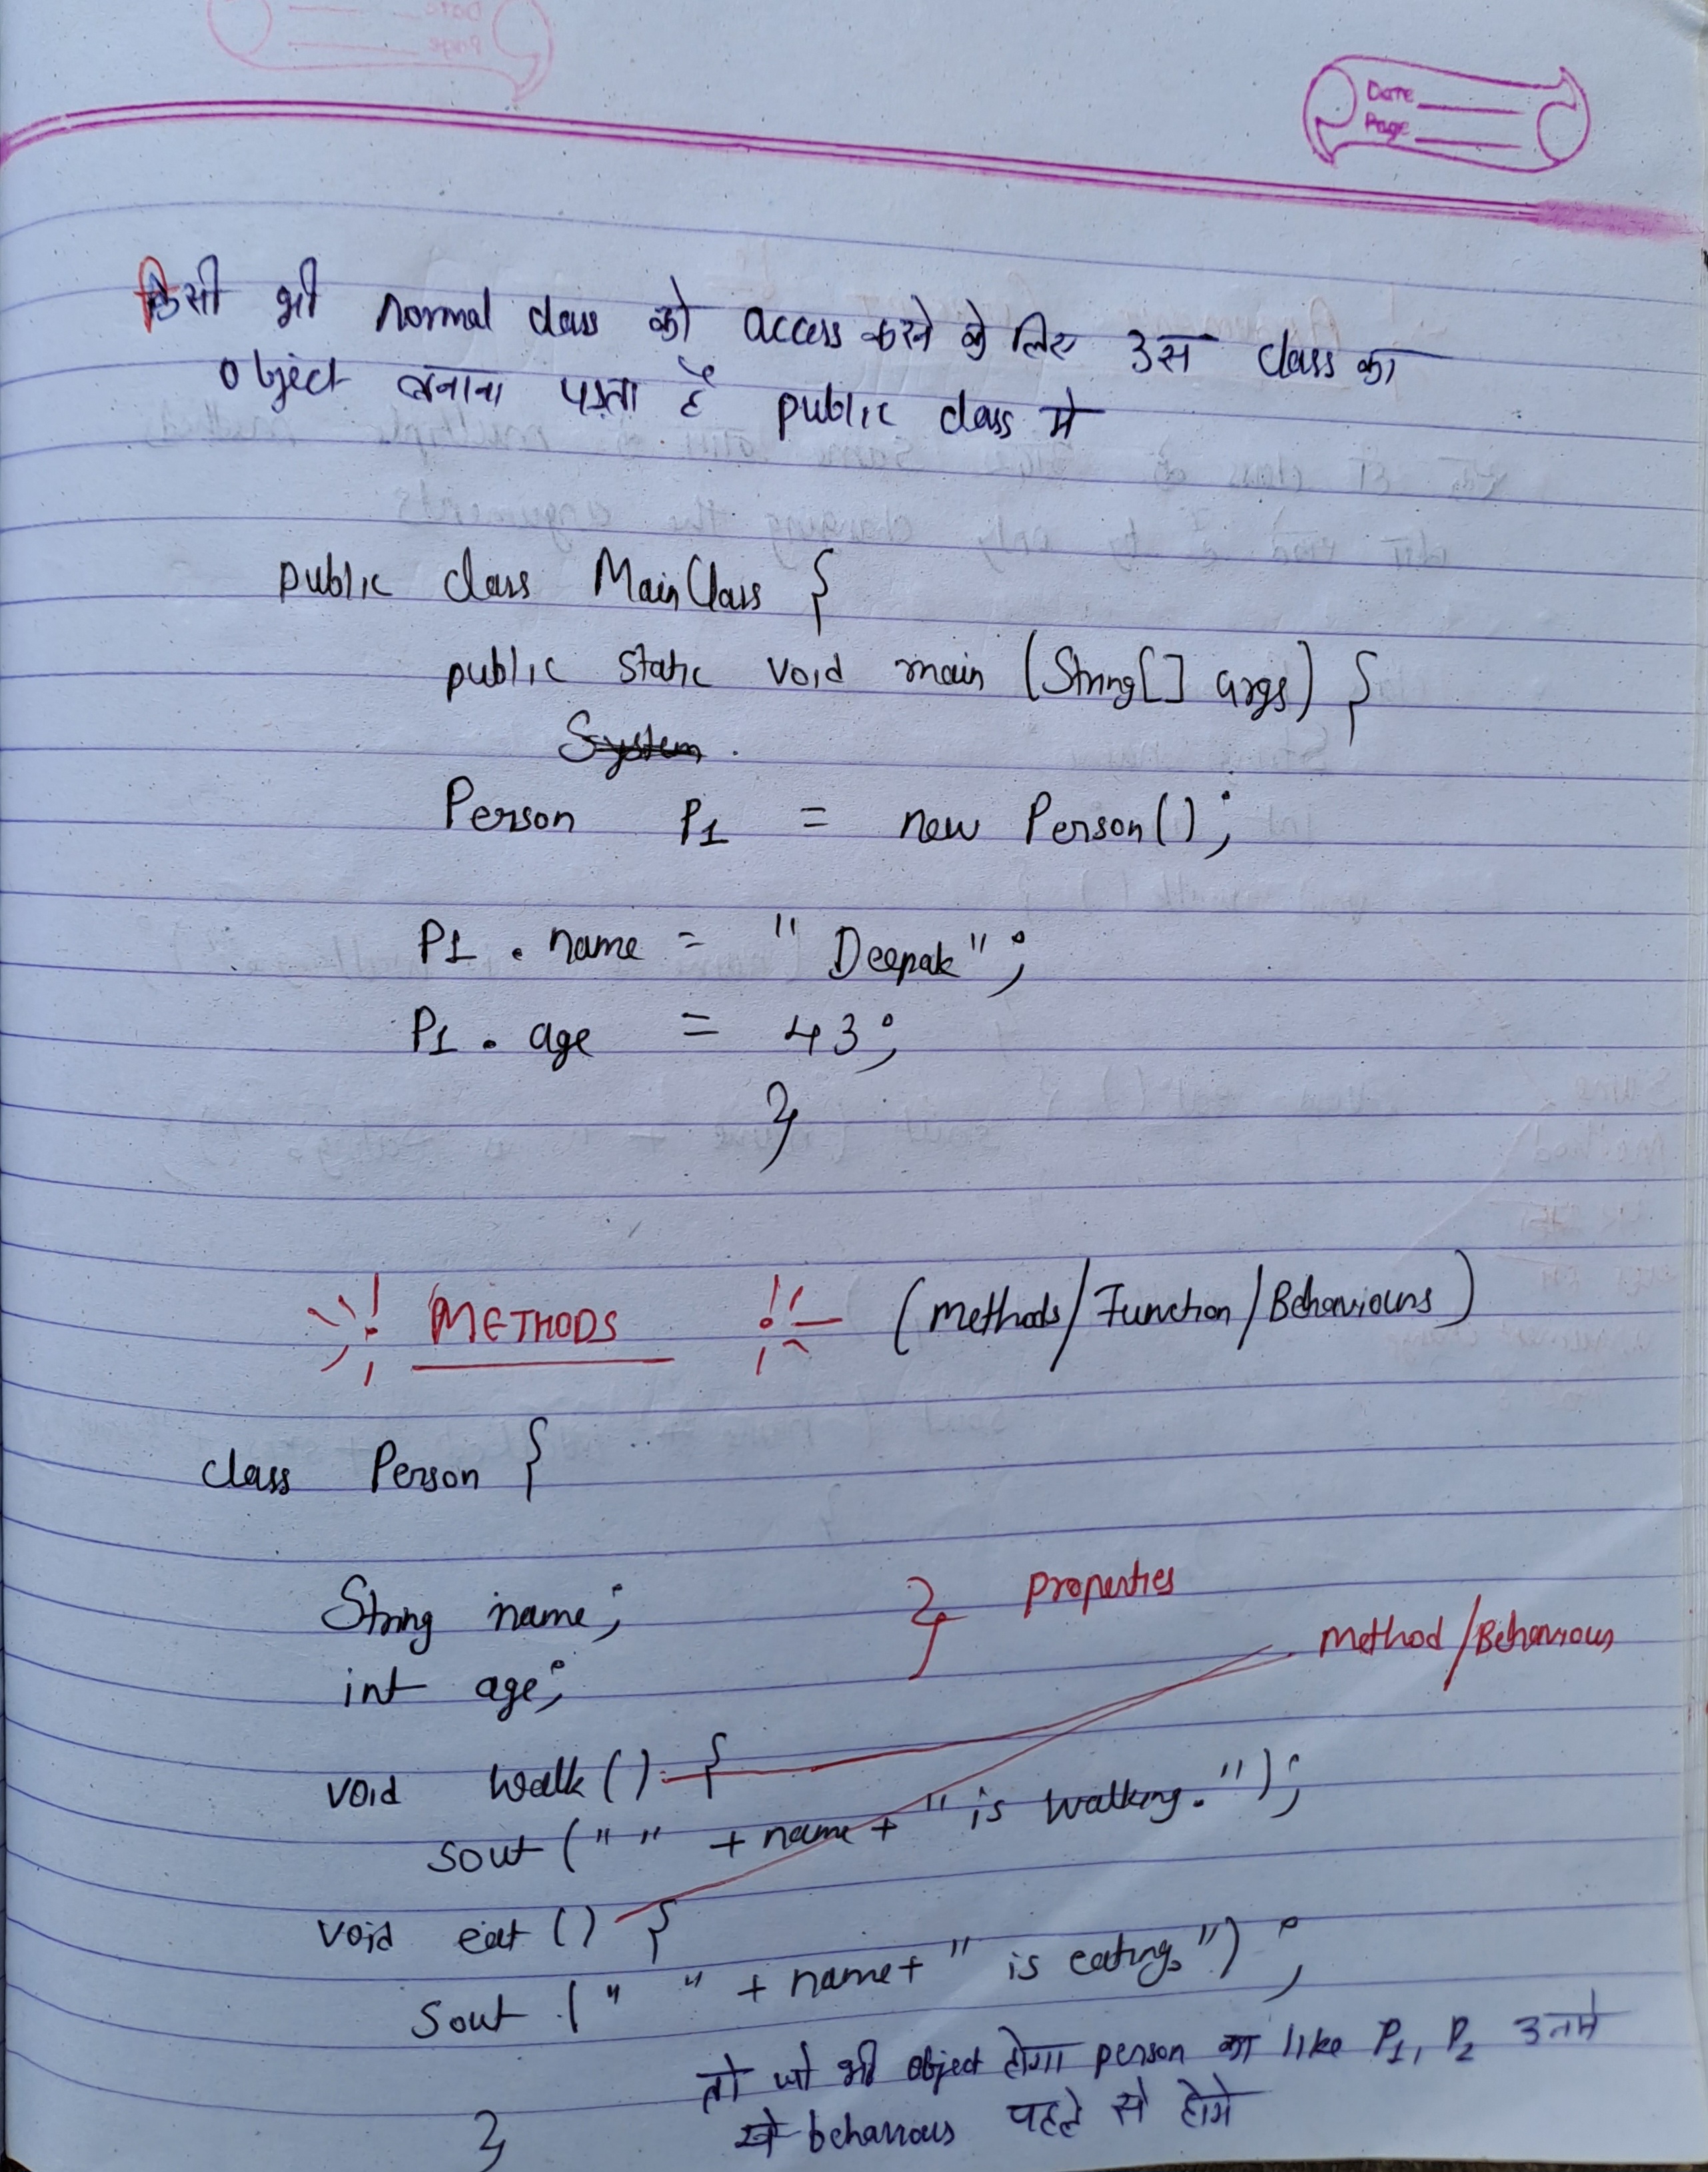 Date
Page
किसी भी normal class को access करने के लिए उस class का
object बनाना पड़ता है public class मे
public class MainClass {
public static void main (String[] args) {
System .
Person P1 = new Person();
P1 . name = " Deepak";
P1 . age = 43;
}
METHODS (Methods/Function/Behaviours)
class Person {
String name; } properties
method/Behaviours
int age;
void walk () {
Sout (" " + name + " is walking.");
void eat () {
Sout (" " + name+ " is eating.") ;
तो जो भी object होगा person का like P1, P2 उनमे
ये behaviours पहले से होगे
}